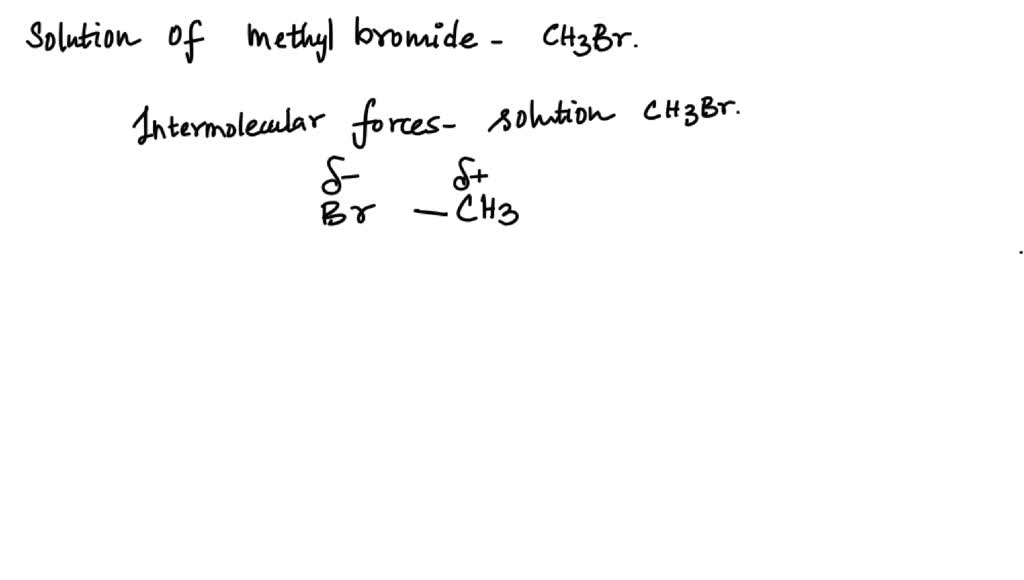 Solution of methyl bromide - CH3Br.
Intermolecular forces - solution CH3Br.
δ- δ+
Br - CH3